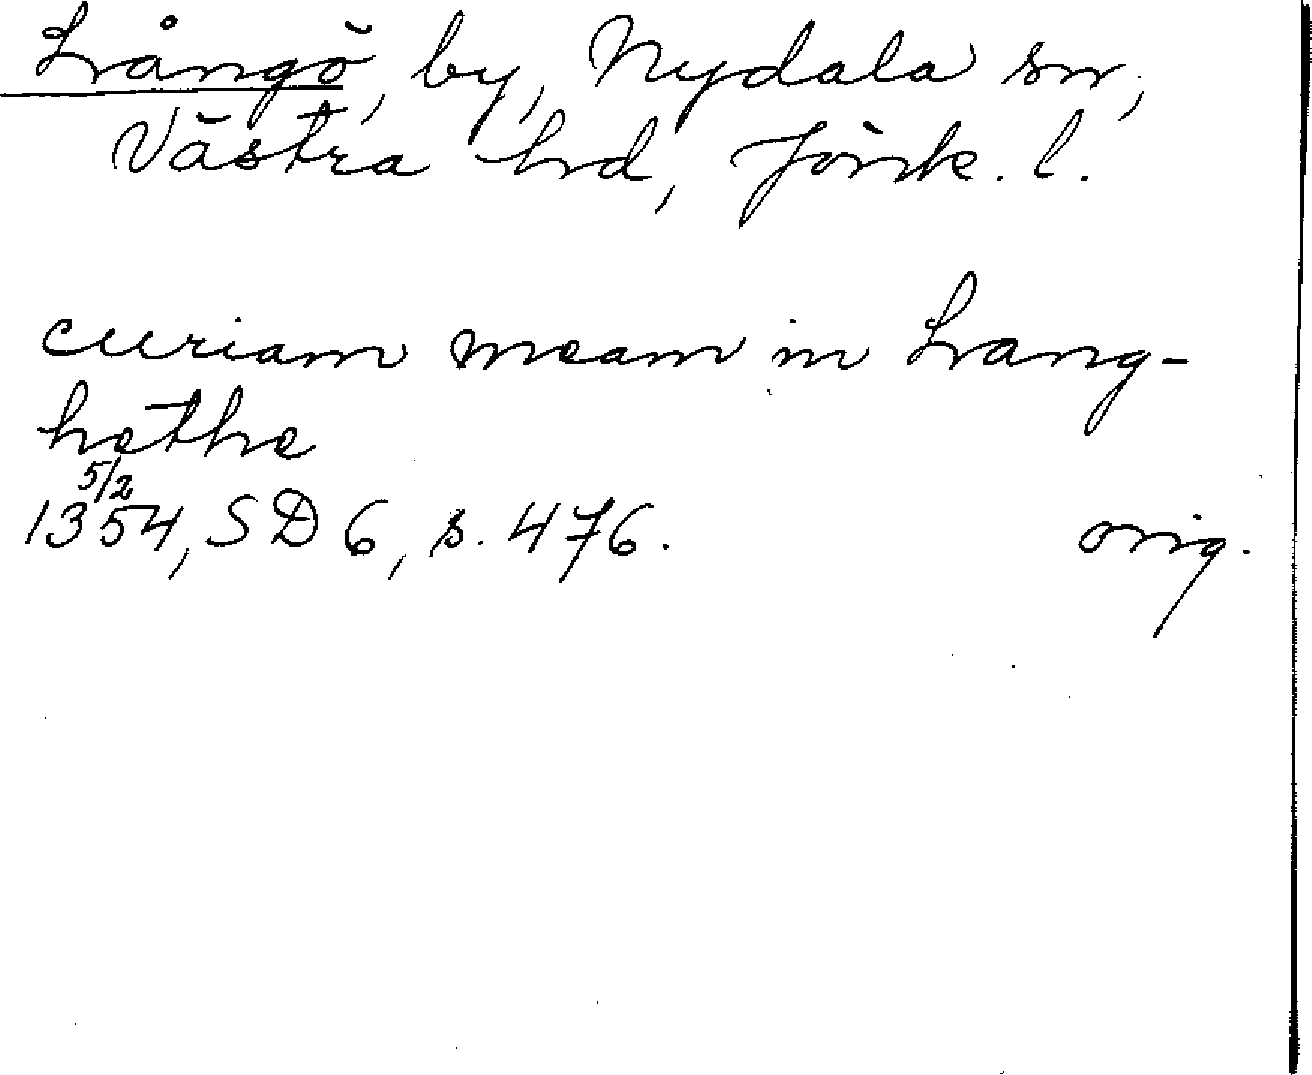 Långö, by, Nydala sn,
Västra hd, Jönk. l.
curiam meam in Lang-
hethe
5/2
1354, SD 6, s. 476. orig.